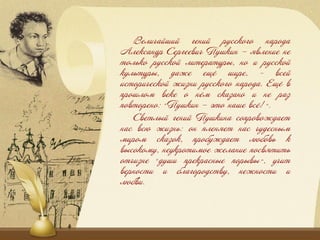 Величайший гений русского народа
Александр Сергеевич Пушкин – явление не
только русской литературы, но и русской
культуры, даже ещё шире, - всей
исторической жизни русского народа. Ещё в
прошлом веке о нём сказано и не раз
повторено: «Пушкин – это наше все!».
Светлый гений Пушкина сопровождает
нас всю жизнь: он пленяет нас чудесным
миром сказок, пробуждает любовь к
высокому, неукротимое желание посвятить
отчизне "души прекрасные порывы", учит
верности и благородству, нежности и
любви.